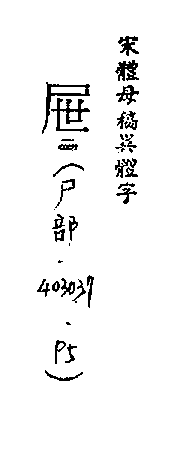 宋體母稿異體字
屜二(尸部.403037.P5)